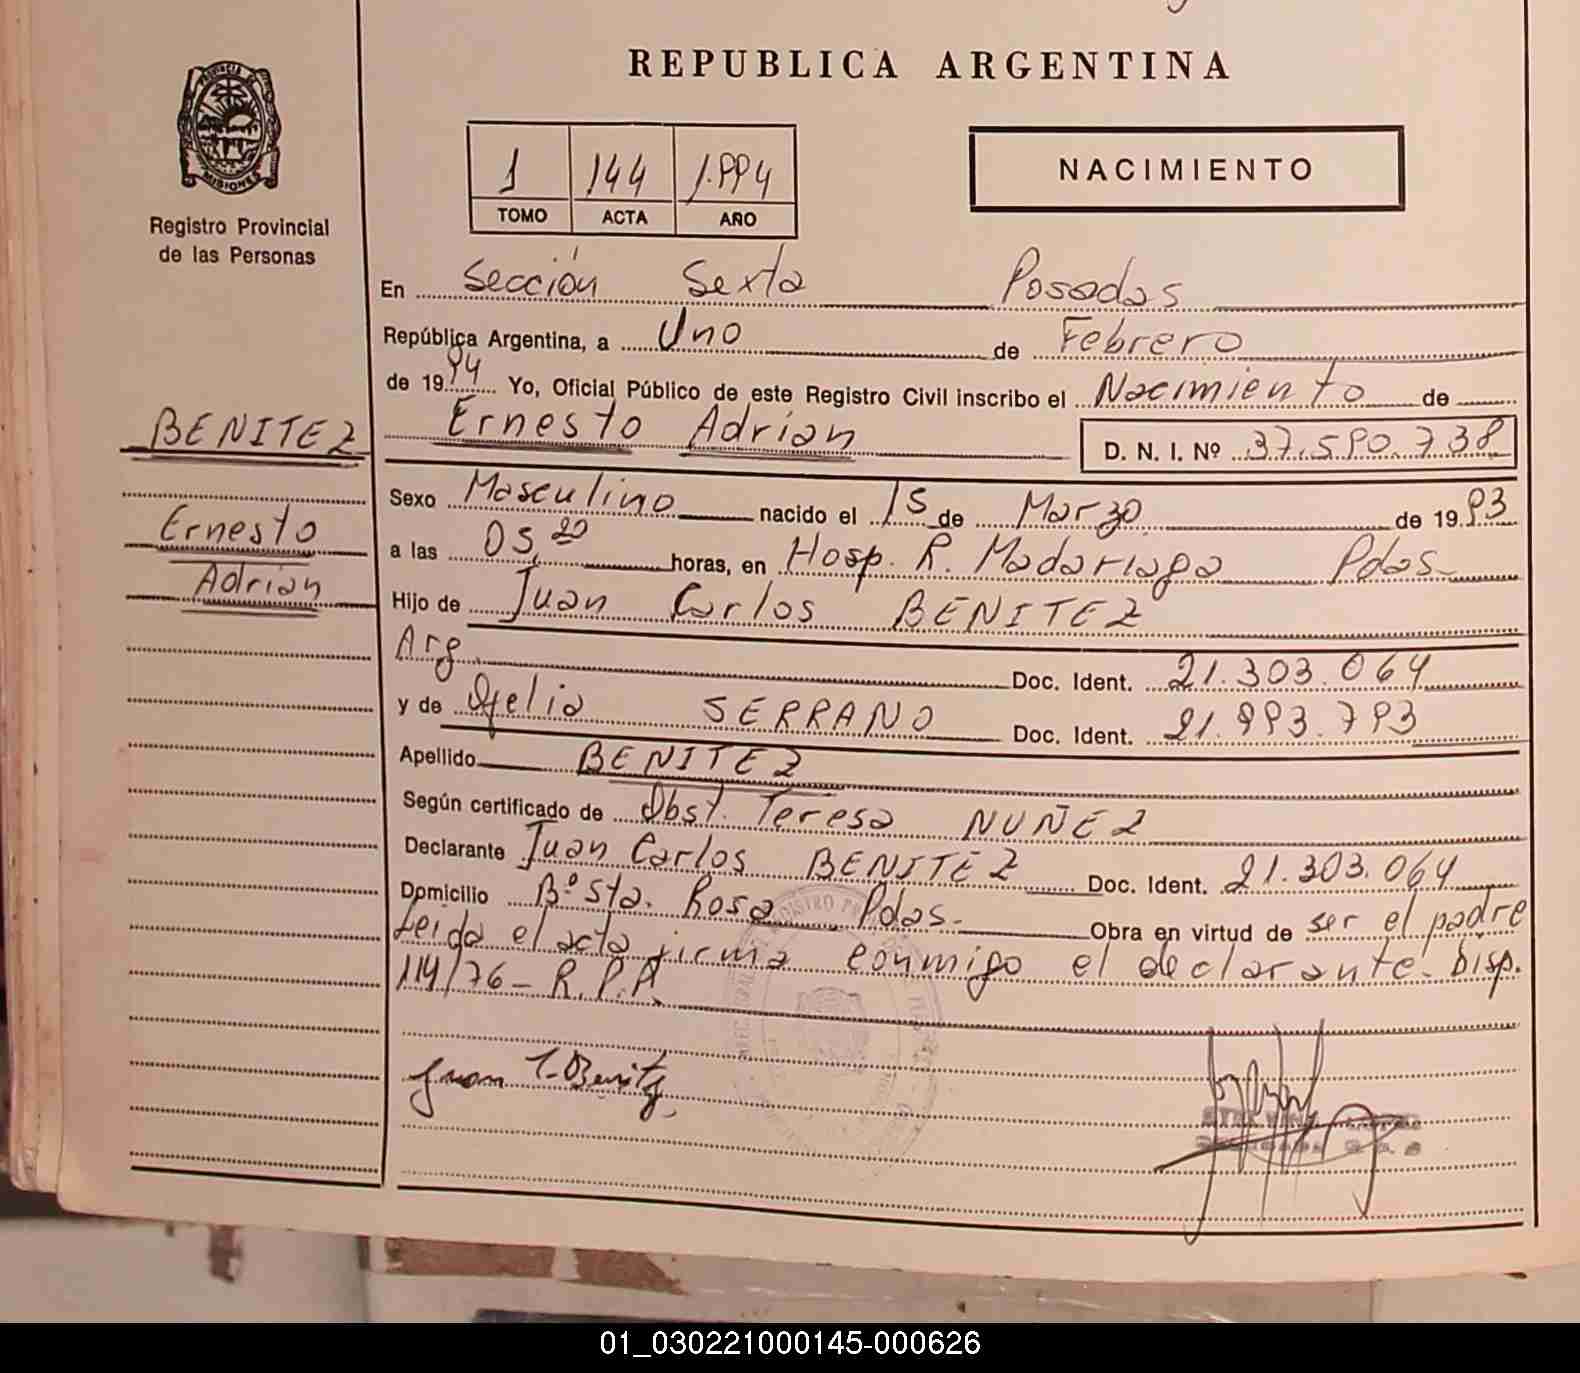 REPUBLICA ARGENTINA
PROVINCIA DE
MISIONES
Registro Provincial
de las Personas
1 144 1.994
TOMO ACTA AÑO
NACIMIENTO
En Sección Sexta Posadas
República Argentina, a Uno de Febrero
de 1994 Yo, Oficial Público de este Registro Civil inscribo el Nacimiento de
BENITEZ
Ernesto Adrian D. N. I. Nº 37.590.738
Sexo Masculino nacido el 15 de Marzo de 1993
Ernesto
a las 05,20 horas, en Hosp. R. Madariaga Pdas.
Adrian
Hijo de Juan Carlos BENITEZ
Arg. Doc. Ident. 21.303.064
y de Ofelia SERRANO Doc. Ident. 21.993.793
Apellido BENITEZ
Según certificado de Obst. Teresa NUÑEZ
Declarante Juan Carlos BENITEZ Doc. Ident. 21.303.064
Domicilio Bº Sta. Rosa Pdas. Obra en virtud de ser el padre
Leida el acta firma conmigo el declarante. Disp.
114/76 - R.P.P.
01_030221000145-000626